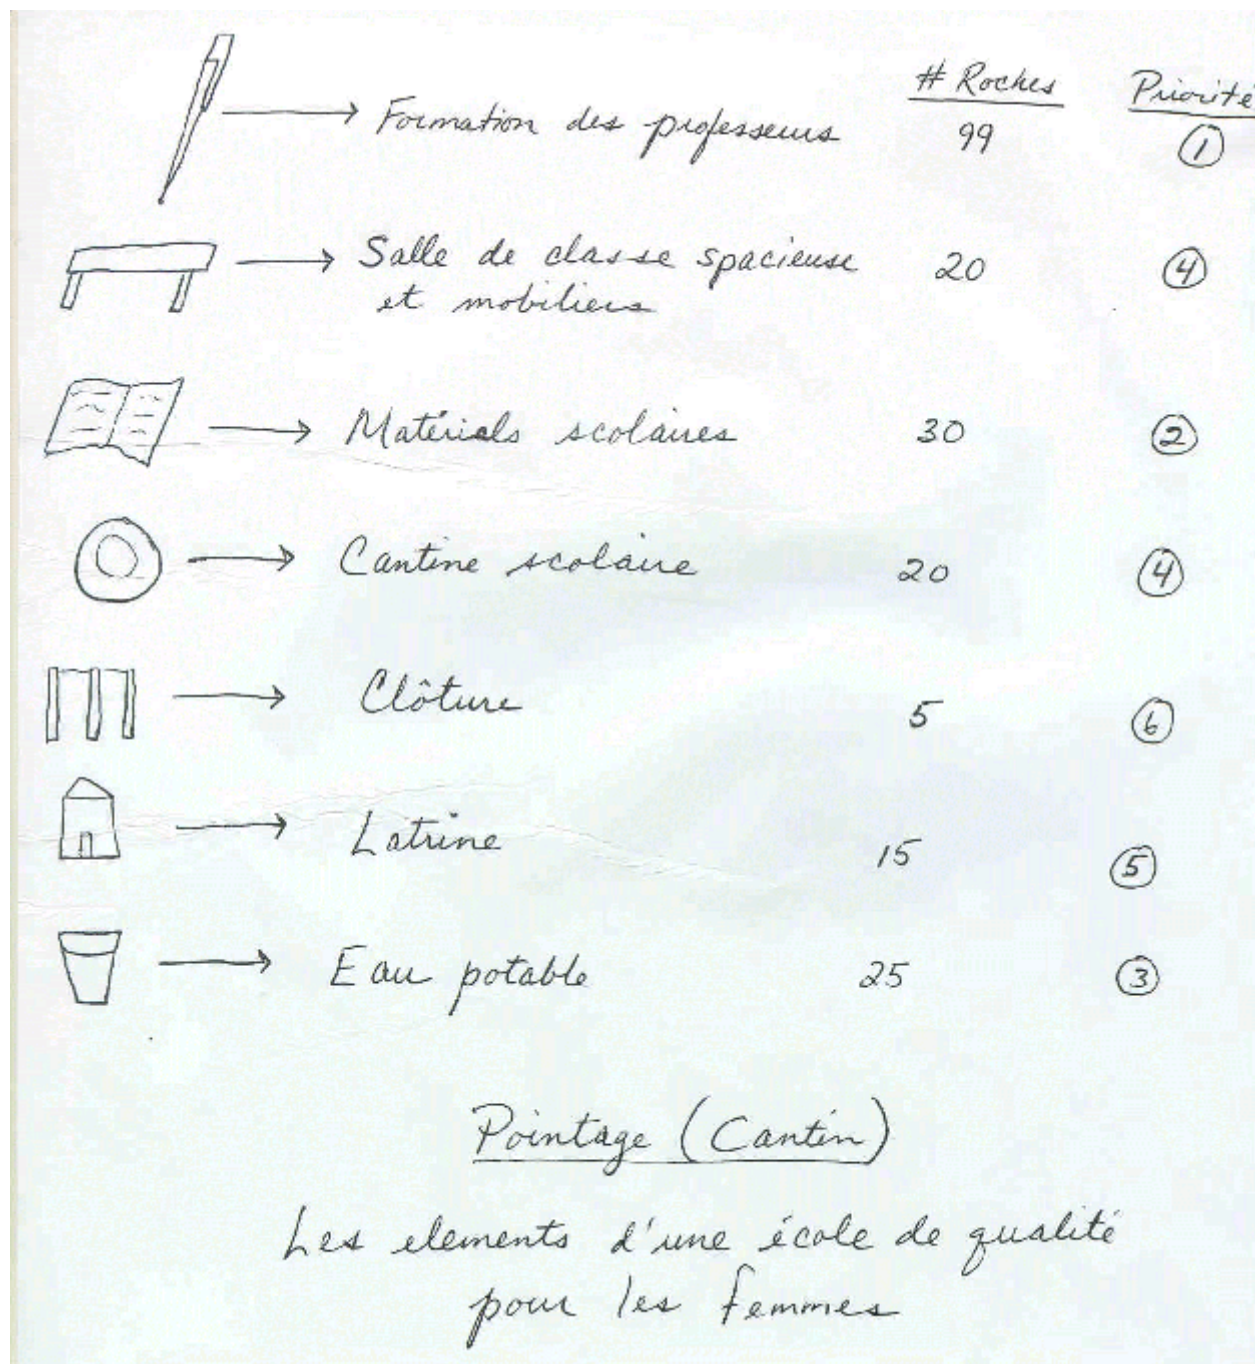 # Roches Priorité
Formation des professeurs 99 1
Salle de classe spacieuse 20 4
et mobiliers
Matériels scolaires 30 2
Cantine scolaire 20 4
Clôture 5 6
Latrine 15 5
Eau potable 25 3
Pointage (Cantin)
Les elements d'une école de qualité
pour les femmes